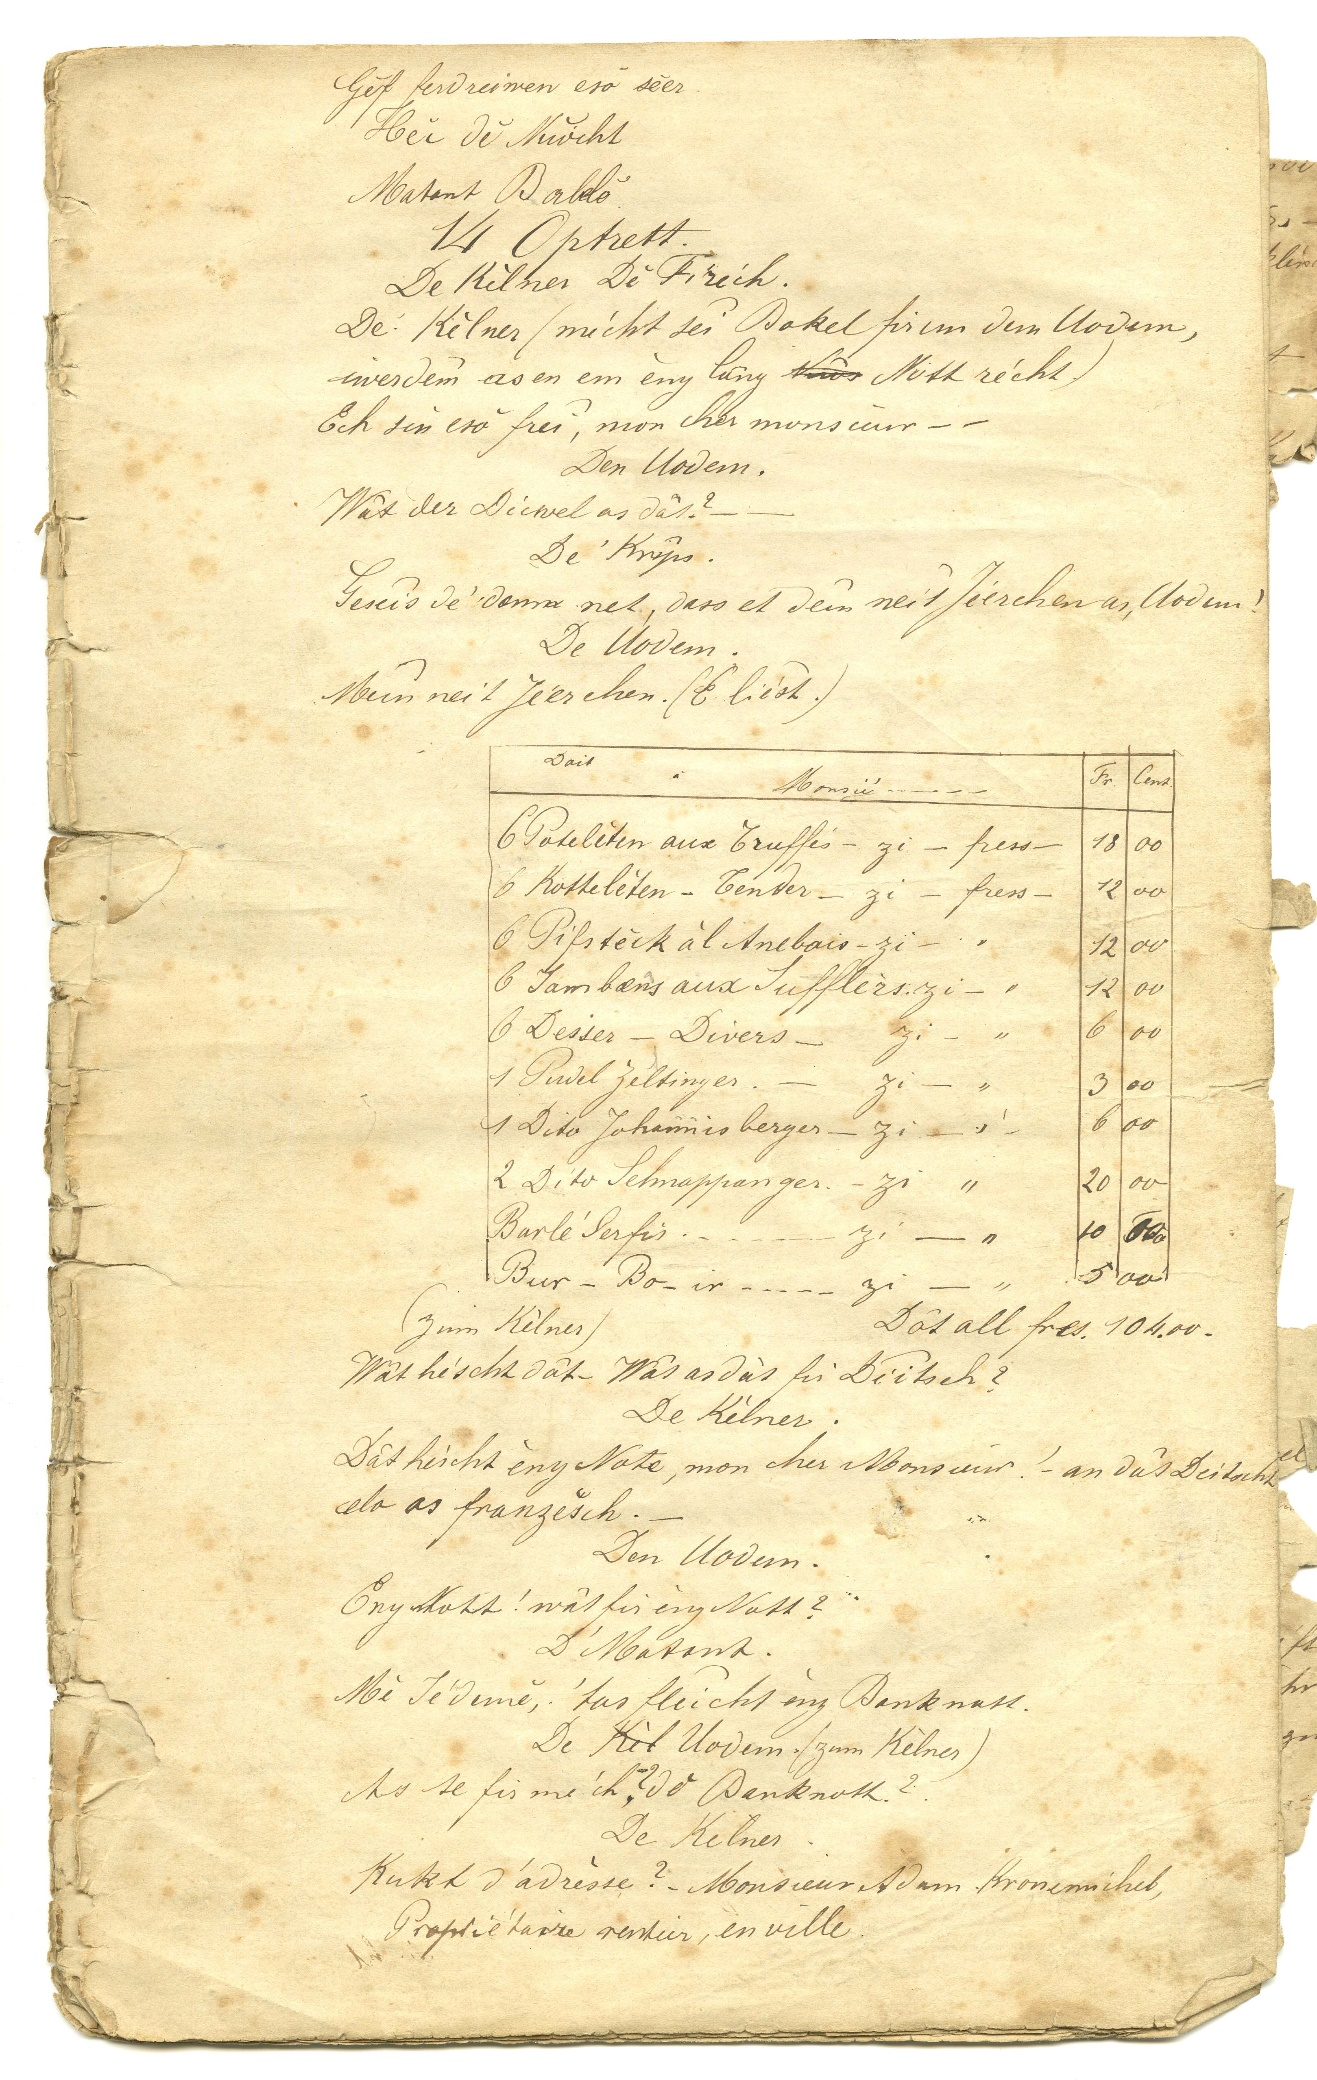 Gĕf ferdreiwen esŏ sĕer.
Hei dĕ Nuŏcht
Matant Baldŏ.
14 Optrett.
De Kĕlner Dĕ Frĕch.
De' Kĕlner (mécht sei Bokel firun dem Uodem,
iwerdêm as en em ĕng lâng Nott récht)
Ech sin esŏ frei, mon cher monsieur – –
Den Uodem.
Wât der Diewel as dât? – –
De' Krŏps.
Geseis de' denn net, dass et dein neit Jéerchen as, Uodem!
De Uodem.
Mein neit Jéerchen. (E liést.)
Doit à Monsié ------ Fr. Cent.
6 Poteléten aux Truffés – zi – fress – 18 00
6 Kotteléten – Tender – zi – fress – 12 00
6 Pifstéck àl Anebais – zi – " 12 00
6 Jambœns aux Sufflèrs. zi – " 12 00
6 Desser – Divers – zi – " 6 00
1 Pudel Zeltinger. – zi – " 3 00
1 Dito Johannisberger – zi – " – 6 00
2 Dito Schnappanger. – zi " 20 00
Barlé Serfis. ------ zi — " 10 00
Bur – Bo – ir ----- zi — " 5 00
(zum Kĕlner) Dât all frcs. 104.00.
Wât héscht dât – Wâs as dât fir Deitsch?
De Kĕlner.
Dât héscht ĕng Note, mon cher Monsieur! – an dât Deitscht
elo as franzĕsch. –
Den Uodem.
Eng Nott! wât fir ĕng Nott?
D'Matant.
Mĕ Jédemĕ, 'tas fleicht ĕng Banknott.
De Kĕl Uodem. (zum Kĕlner)
As se fir méch? dĕ Banknott.?
De Kĕlner.
Kukt d'adrèsse? – Monsieur Adam Kronemichel,
Propriétaire rentier, en ville.